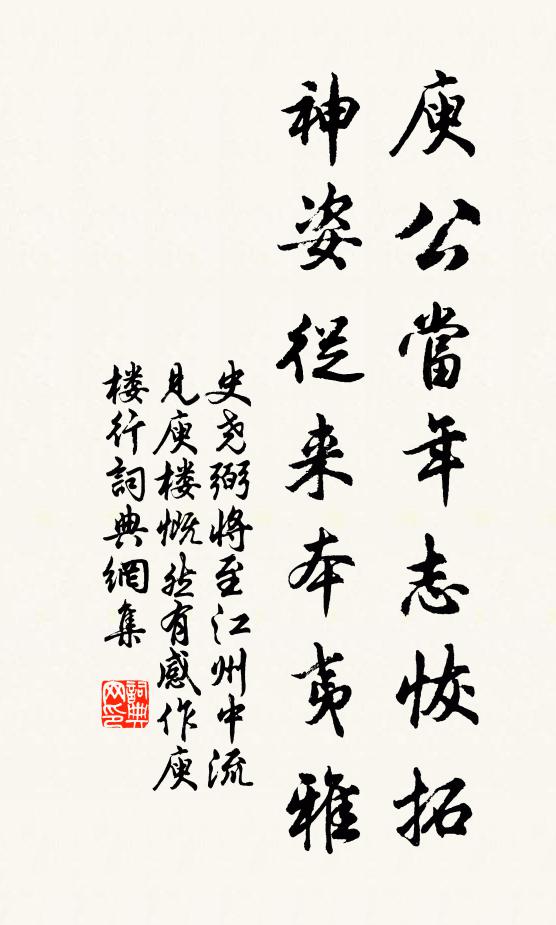 庾公當年志恢拓
神姿從来本夷雅
史尧弼將至江州中流
見庾楼慨然有感作庾
楼行詞典網集
詞典网印